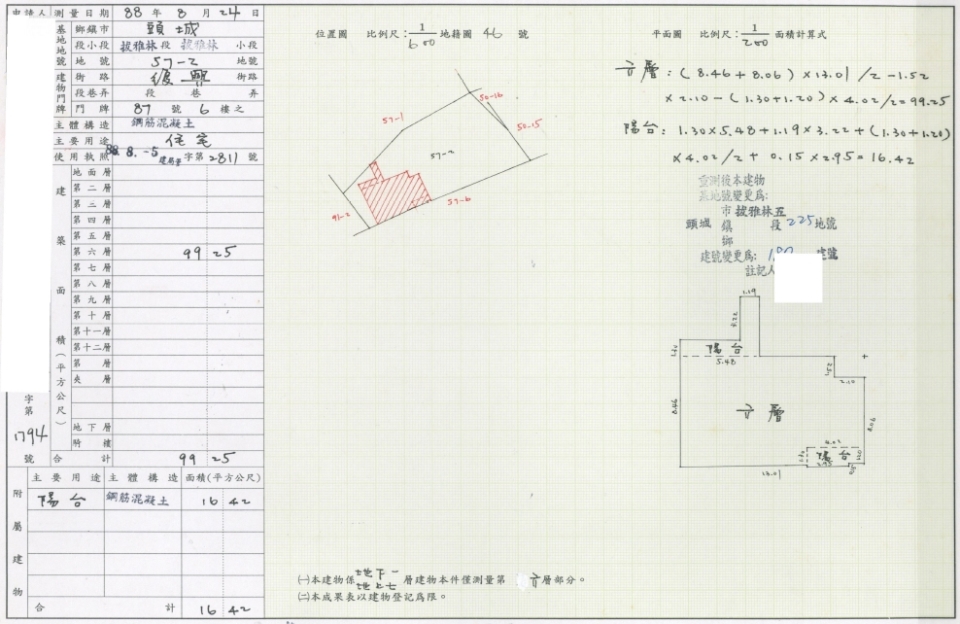 申請人 測量日期 88 年 8 月 24 日
基地地號 鄉鎮市 頭城
段小段 拔雅林 段 拔雅林 小段
地號 57-2 地號
建物門牌 街路 復興 街路
段巷弄 段 巷 弄
門牌 87 號 6 樓之
主體構造 鋼筋混凝土
主要用途 住宅
使用執照 88. 8. -5 建局 字第 2811 號
建築面積(平方公尺)
地面層
第二層
第三層
第四層
第五層
第六層 99 25
第七層
第八層
第九層
第十層
第十一層
第十二層
第 層
夾層
地下層
騎樓
合計 99 25
字第 1794 號
附屬建物
主要用途 主體構造 面積(平方公尺)
陽台 鋼筋混凝土 16 42
合計 16 42
位置圖 比例尺: 1/600 地籍圖 46 號
50-16
57-1
50-15
57-2
91-2
57-6
平面圖 比例尺: 1/200 面積計算式
六層:(8.46+8.06)×13.01/2-1.52
×2.10-(1.30+1.20)×4.02/2=99.25
陽台:1.30×5.48+1.19×3.22+(1.30+1.20)
×4.02/2+0.15×2.95=16.42
重測後本建物
基地號變更為:
頭城 市鎮鄉 拔雅林五段 225 地號
建號變更為: 建號
註記人
1.19
3.22
1.30
陽台
5.48
1.52
2.10
8.46
六層
8.06
4.02
1.30
陽台
1.20
2.95
13.01
㈠本建物係地下一地上七層建物本件僅測量第六層部分。
㈡本成果表以建物登記為限。